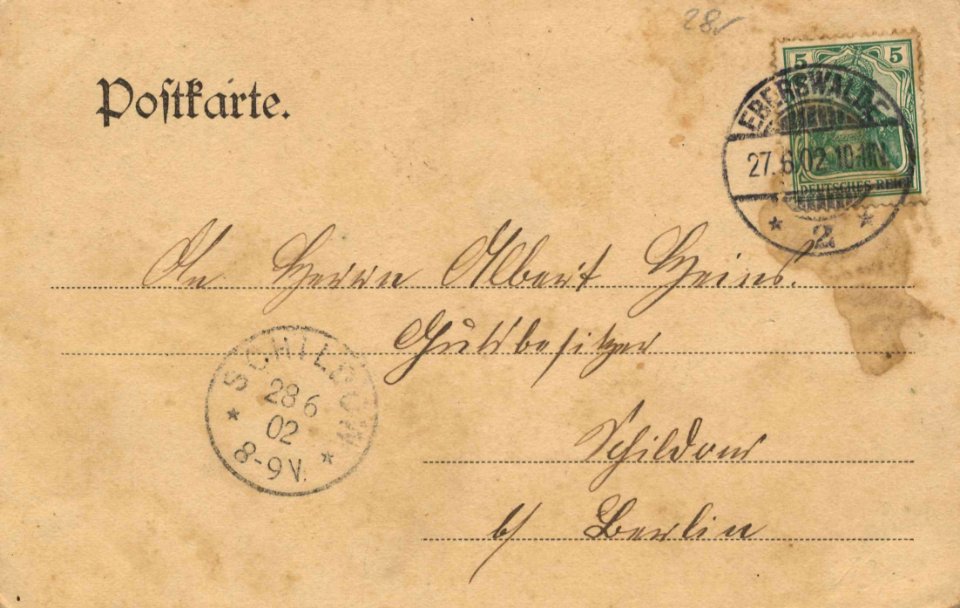 28
Postkarte.
5 5
EBERSWALDE
27.6.02. 10-11N.
DEUTSCHES REICH
* 2 *
An Herrn Albert Heins.
Gutsbesitzer
SCHILDOW
28 6
02
* 8-9V. *
Schildow
b/ Berlin